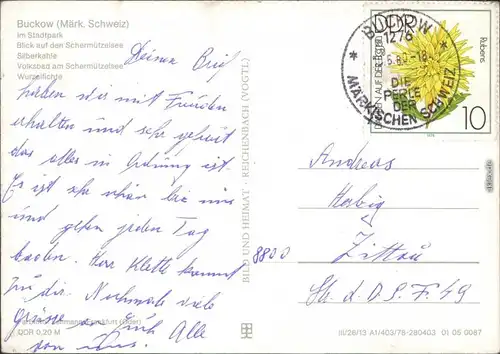 Buckow (Märk. Schweiz)
im Stadtpark
Blick auf den Schermützelsee
Silberkehle
Volksbad am Schermützelsee
Wurzelfichte
Deinen Brief
haben wir mit Freuden
erhalten und sehr gefreut
das alles in Ordnung ist.
Es ist sehr schön bei uns
und gehen jeden Tag
baden. Herr Klette kommt
zu dir. Nochmals viele
Grüsse Euch Alle
von uns.
DDR 0,20 M
BILD UND HEIMAT · REICHENBACH (VOGTL)
BUCKOW
1276
DIE
PERLE
DER
MÄRKISCHEN SCHWEIZ
DDR
Rubens
10
Andreas
Helbig
8800 Zittau
Str. d. D.S.F. 49
III/26/13 A1/403/78-280403 01 05 0087